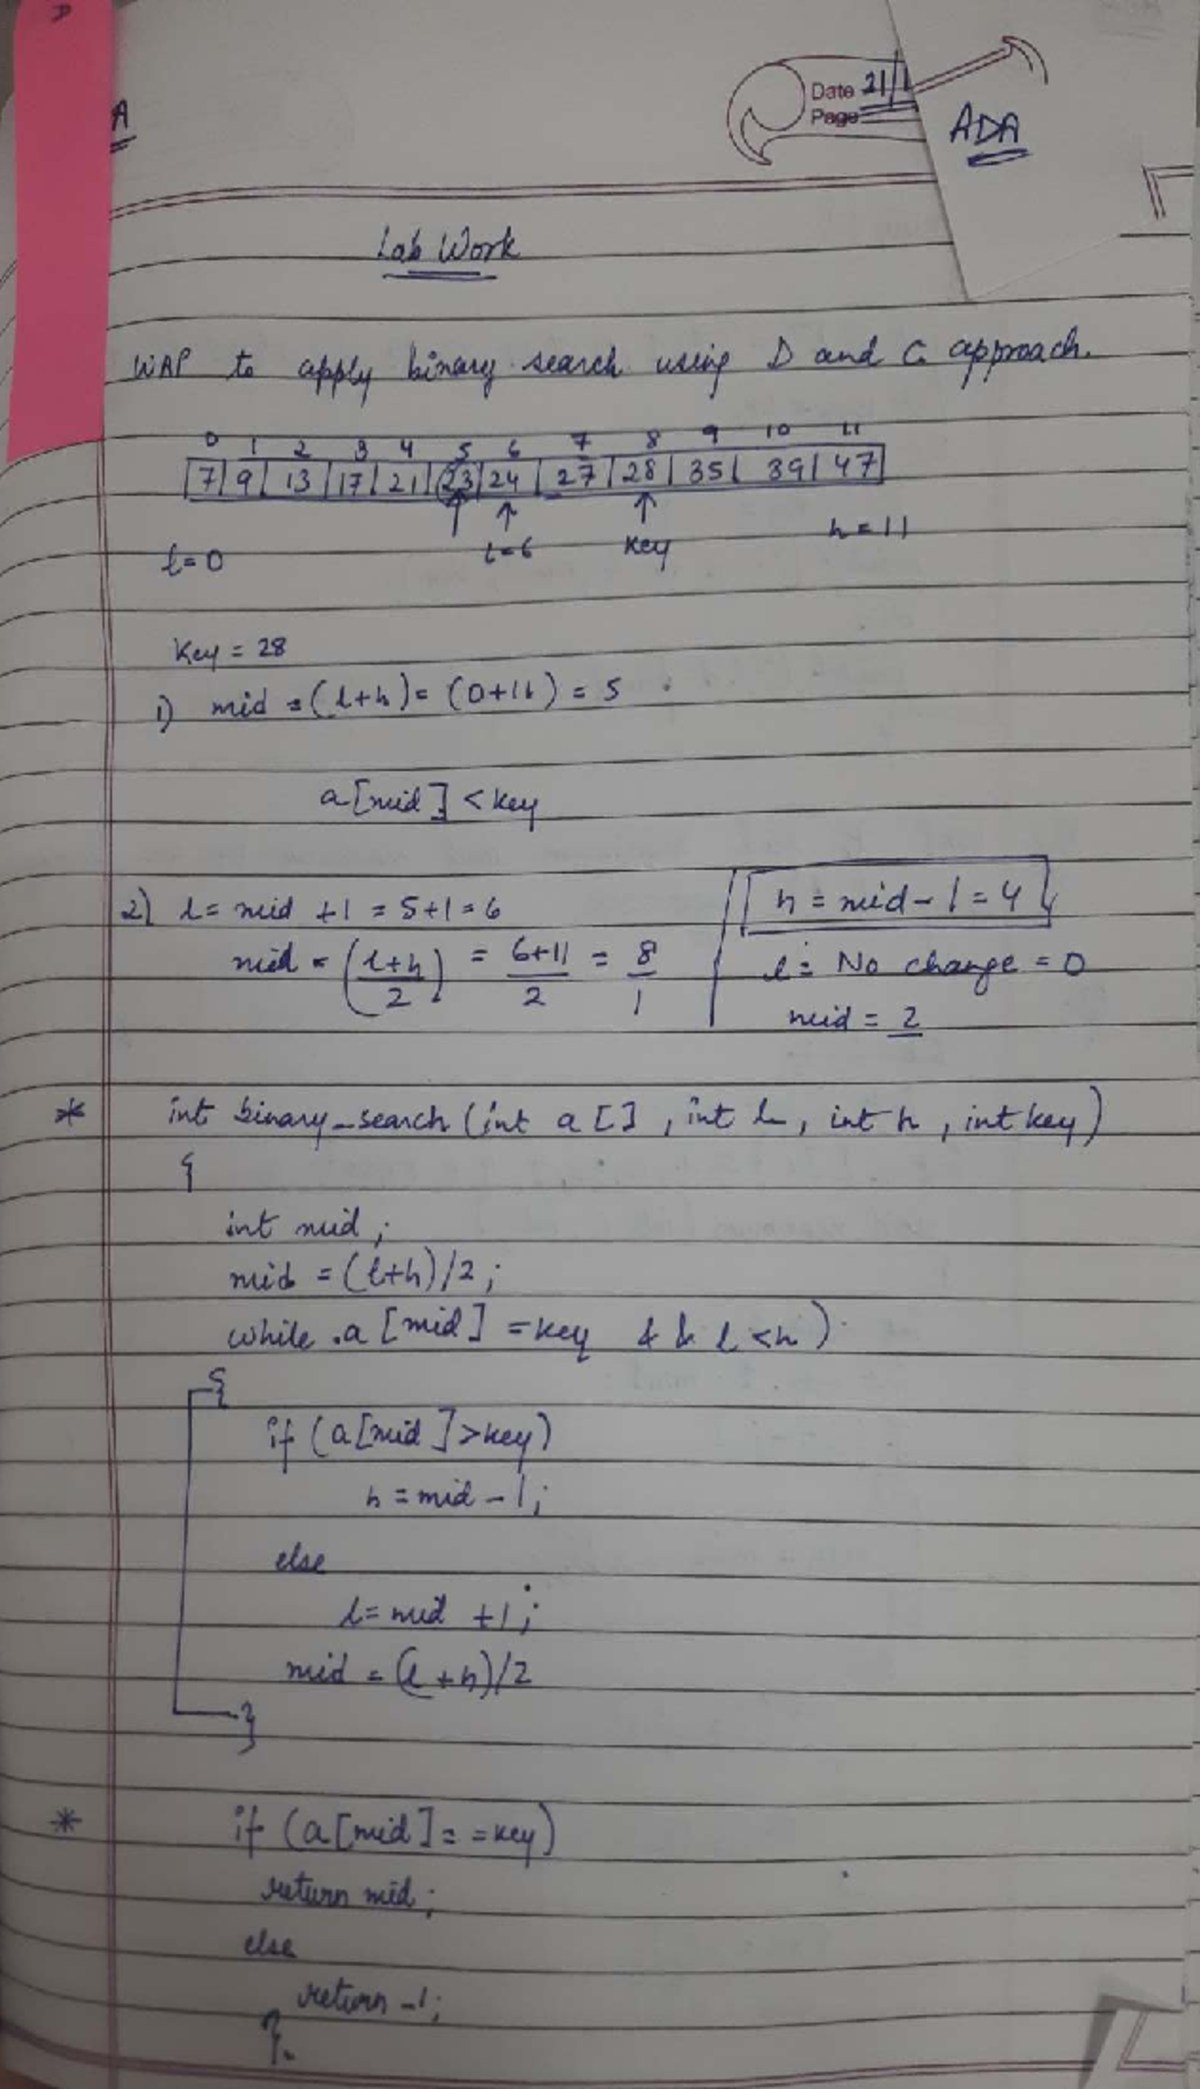 A
Date 21/1
Page
ADA
Lab Work
WAP to apply binary search using D and C approach.
0 1 2 3 4 5 6 7 8 9 10 11
7 9 13 17 21 23 24 27 28 35 39 47
↑ ↑ ↑
l=0 l=6 key h=11
Key = 28
1) mid = (l+h) = (0+11) = 5
a[mid] < key
2) l = mid +1 = 5+1 = 6
h = mid - 1 = 4
mid = (l+h)/2 = 6+11/2 = 8/1
l = No change = 0
mid = 2
* int binary_search (int a[], int l, int h, int key)
{
int mid;
mid = (l+h)/2;
while .a [mid] = key && l <h)
{
if (a[mid]>key)
h = mid - 1;
else
l = mid +1;
mid = (l+h)/2
}
* if (a[mid]==key)
return mid;
else
return -1;
}.